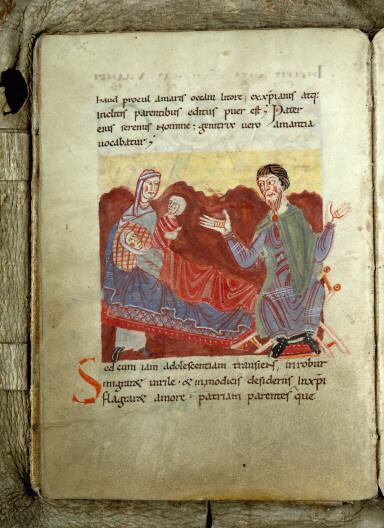 haud procul a maris occani litore, ex xpianis atq:
inclitis parentibus editus puer est; Pater
eius serenus Nomine; genitrix vero amantia
vocabatur;
Sed cum iam adolescentiam transiens, in robur
migraret virile · & inmodicis desideriis in xpi
flagraret amore · patriam parentes que